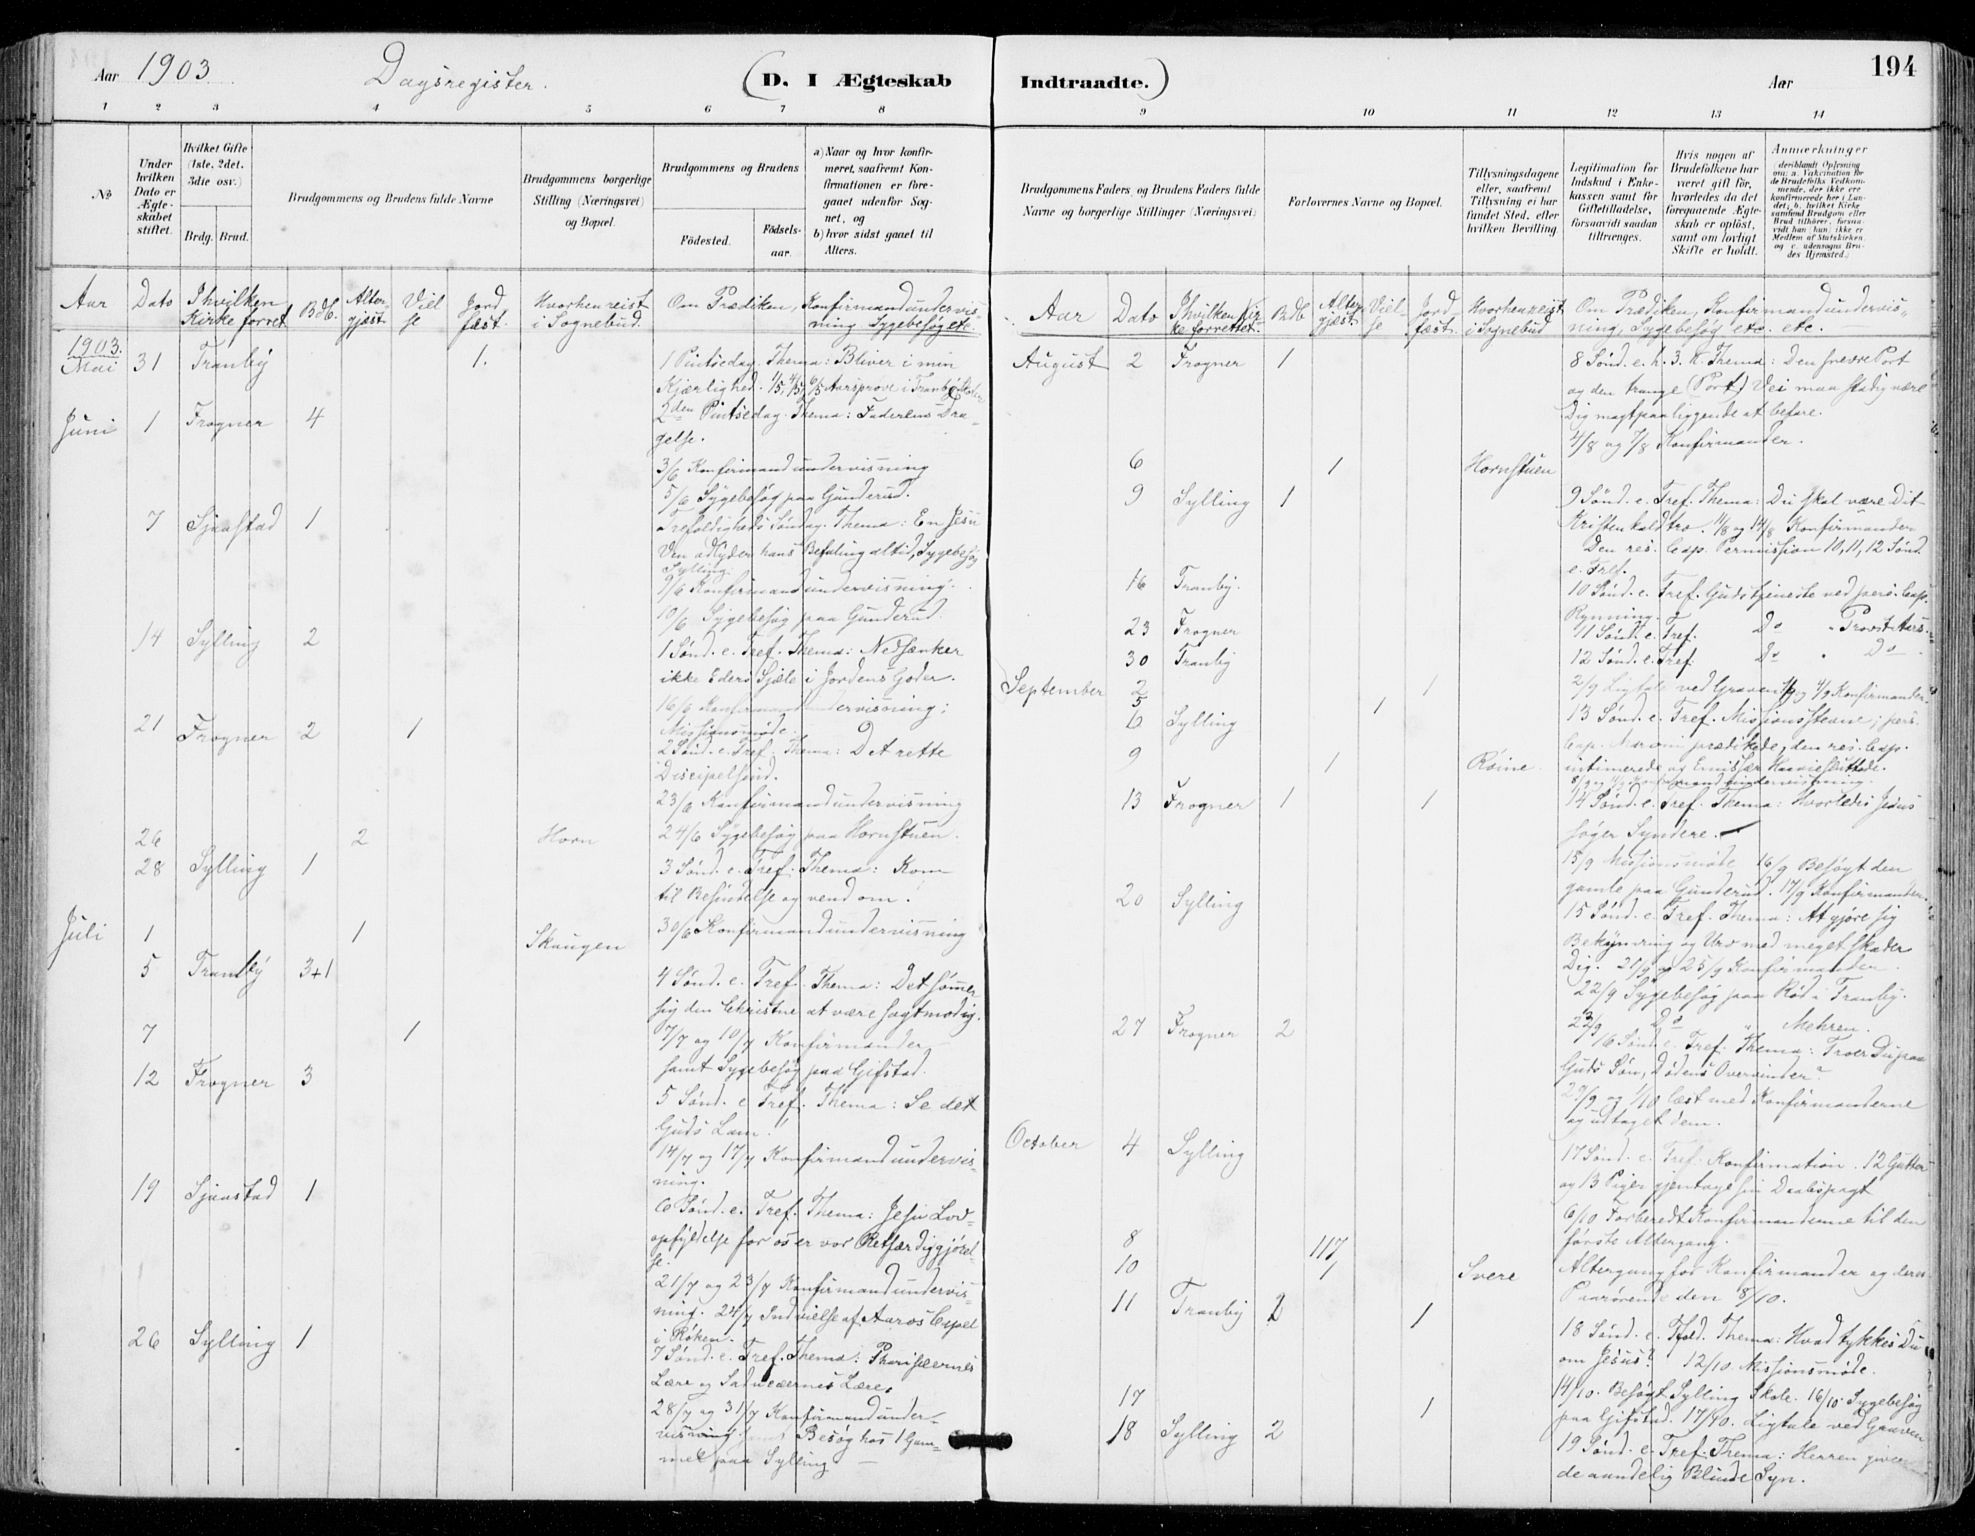 Aar 1903 Dagsregister. (D. I Ægteskab
1 2 3 4 5 6 7 8
No
Under hvilken Dato er Ægteskabet stiftet.
Hvilket Gifte (1ste, 2det, 3die osv.)
Brdg. Brud.
Brudgommens og Brudens fulde Navne
Brudgommens borgerlige Stilling (Næringsvei) og Bopæl.
Brudgommens og Brudens
Fødested.
Fødselsaar.
a) Naar og hvor konfirmeret, saafremt Konfirmationen er foregaaet udenfor Sognet, og
b) hvor sidst gaaet til Alters.
Aar Dato I hvilken Kirke forret. Bdb. Altergjæst Vielse Jordfæst. Hvorhen reist i Sognebud. Om Prædiken, Konfirmandundervisning Sygebesøg etc.
1903.
Mai 31 Tranby 1. 1 Pintsedag Thema: Bliver i min
Kjærlighed. 1/5, 4/5, 6/5 Aarsprøve i Tranby Skoler
Juni 1 Frogner 4 2den Pintsedag. Thema: Faderens Dra-
gelse.
3/6 Konfirmandundervisning
5/6 Sygebesøg paa Gunderud.
7 Sjaastad 1 Trefoldigheds Søndag. Thema: En Jesu
Ven adlyder hans Befaling altid, Sygebesøg
Sylling.
9/6 Konfirmandundervisning.
10/6 Sygebesøg paa Gunderud.
14 Sylling 2 1 Sønd. e. Tref. Thema: Nedsænker
ikke Eders Sjæle i Jordens Goder.
16/6 Konfirmandundervisning;
Missionsmøde.
21 Frogner 2 1 2 Sønd. e. Tref. Thema: Det rette
Discipelsind.
23/6 Konfirmandundervisning
26 2 Horn 24/6 Sygebesøg paa Hornstuen.
28 Sylling 1 3 Sønd. e. Tref. Thema: Kom
til Besindelse og vend om.
Juli 1 1 Skaugen 30/6 Konfirmandundervisning
5 Tranby 3+1 4 Sønd. e. Tref. Thema: Det sømmer
sig den Christne at være sagtmodig.
7 1 7/7 og 10/7 Konfirmander
samt Sygebesøg paa Gifstad.
12 Frogner 3 5 Sønd. e Tref. Thema: Se det
Guds Lam!
14/7 og 17/7 Konfirmandundervis-
ning.
19 Sjaastad 1 6 Sønd. e. Tref. Thema: Jesu Lov-
opfyldelse for os er vor Retfærdiggjørel-
se.
21/7 og 23/7 Konfirmandundervis-
ning. 24/7 Indvielse af Aaros Capel
i Røken.
26 Sylling 1 7 Sønd. e. Tref. Thema: Pharisæernes
Lære og Saducæernes Lære.
28/7 og 31/7 Konfirmandunder-
visning samt Besøg hos 1 Gam-
mel paa Sylling
Indtraadte.) Aar 194
9 10 11 12 13 14
Brudgommens Faders og Brudens Faders fulde Navne og borgerlige Stillinger (Næringsvei)
Forlovernes Navne og Bopæl.
Tillysningsdagene eller, saafremt Tillysning ei har fundet Sted, efter hvilken Bevilling.
Legitimation for Indskud i Enkekassen samt for Giftetilladelse, forsaavidt saadan tiltrænges.
Hvis nogen af Brudefolkene har været gift før, hvorledes da det foregaaende Ægteskab er opløst, samt om lovligt Skifte er holdt.
Anmærkninger
(deriblandt Oplysning om: a. Vakcination for de Brudefolks Vedkommende, der ikke ere konfirmerede her i Landet; b. hvilket Kirkesamfund Brudgom eller Brud tilhører, forsaavidt han (hun) ikke er Medlem af Statskirken, og c. udensogns Brudes Hjemsted.)
Aar Dato I hvilken Kirke forrettet. Bdb Altergjæst Vielse Jordfæst. Hvorhen reist i Sognebud Om Prædiken, Konfirmandundervisning, Sygebesøg etc. etc.
August 2 Frogner 1 8 Sønd. e. h. 3. K. Thema: Den snevre Port
og den trange (Port) Vei maa stadig være
Dig magtpaaliggende at befare.
4/8 og 7/8 Konfirmander.
6 1 Hornstuen
9 Sylling 1 9 Sønd. e. Tref. Thema: Du skal være Dit
Kristenkald tro. 11/8 og 14/8 Konfirmander
Den res. Cap. Permission 10, 11, 12 Sønd.
e. Tref.
16 Tranby. 10 Sønd. e. Tref. Gudstjeneste ved pers. Cap.
Rynning.
23 Frogner 11 Sønd. e. Tref. Do " Provst Aars.
30 Tranby 12 Sønd. e. Tref. Do " Do
September 2 1 2/9 Ligtale ved Graven og 4/9 Konfirmander.
5 1
6 Sylling 13 Sønd. e. Tref. Missionsstevne; pers.
Cap. prædikede, den res. Cap.
9 1 Røine. intimerede og Emissær sluttede.
8/9 og Konfirmandundervisning.
13 Frogner 1 1 14 Sønd. e. Tref. Thema: Hvorledes Jesus
søger Syndere.
15/9 Missionsmøde 16/9 Besøgt den
gamle paa Gunderud. 17/9 Konfirmander.
20 Sylling 15 Sønd. e. Tref. Thema: At gjøre sig
Bekymring og Uro med meget skader
Dig. 21/9 og 25/9 Konfirmander.
22/9 Sygebesøg paa Rød i Tranby.
23/9 Do " Mehren.
27 Frogner 2 16 Sønd. e. Tref. Thema: Troer Du paa
Guds Søn, Dødens Overvinder?
29/9 og 1/10 læst med Konfirmanderne
og udtaget dem.
October 4 Sylling 17 Sønd. e. Tref. Konfirmation. 12 Gutter
og 13 Piger gjentage sin Daabspagt
6/10 Forberedt Konfirmanderne til den
første Altergang.
8 117
10 1 Svere Altergang for Konfirmander og deres
Paarørende den 8/10.
11 Tranby 2 1 18 Sønd. e. Tfold. Thema: Hvad tykkes Du
om Jesus? 12/10 Missionsmøde.
14/10. Besøgt Sylling Skole. 16/10 Sygebesøg
17 1 paa Gifstad. 17/10. Ligtale ved Graven
18 Sylling 2 19 Sønd. e. Tref. Thema: Herren giver
de aandelig Blinde Syn.